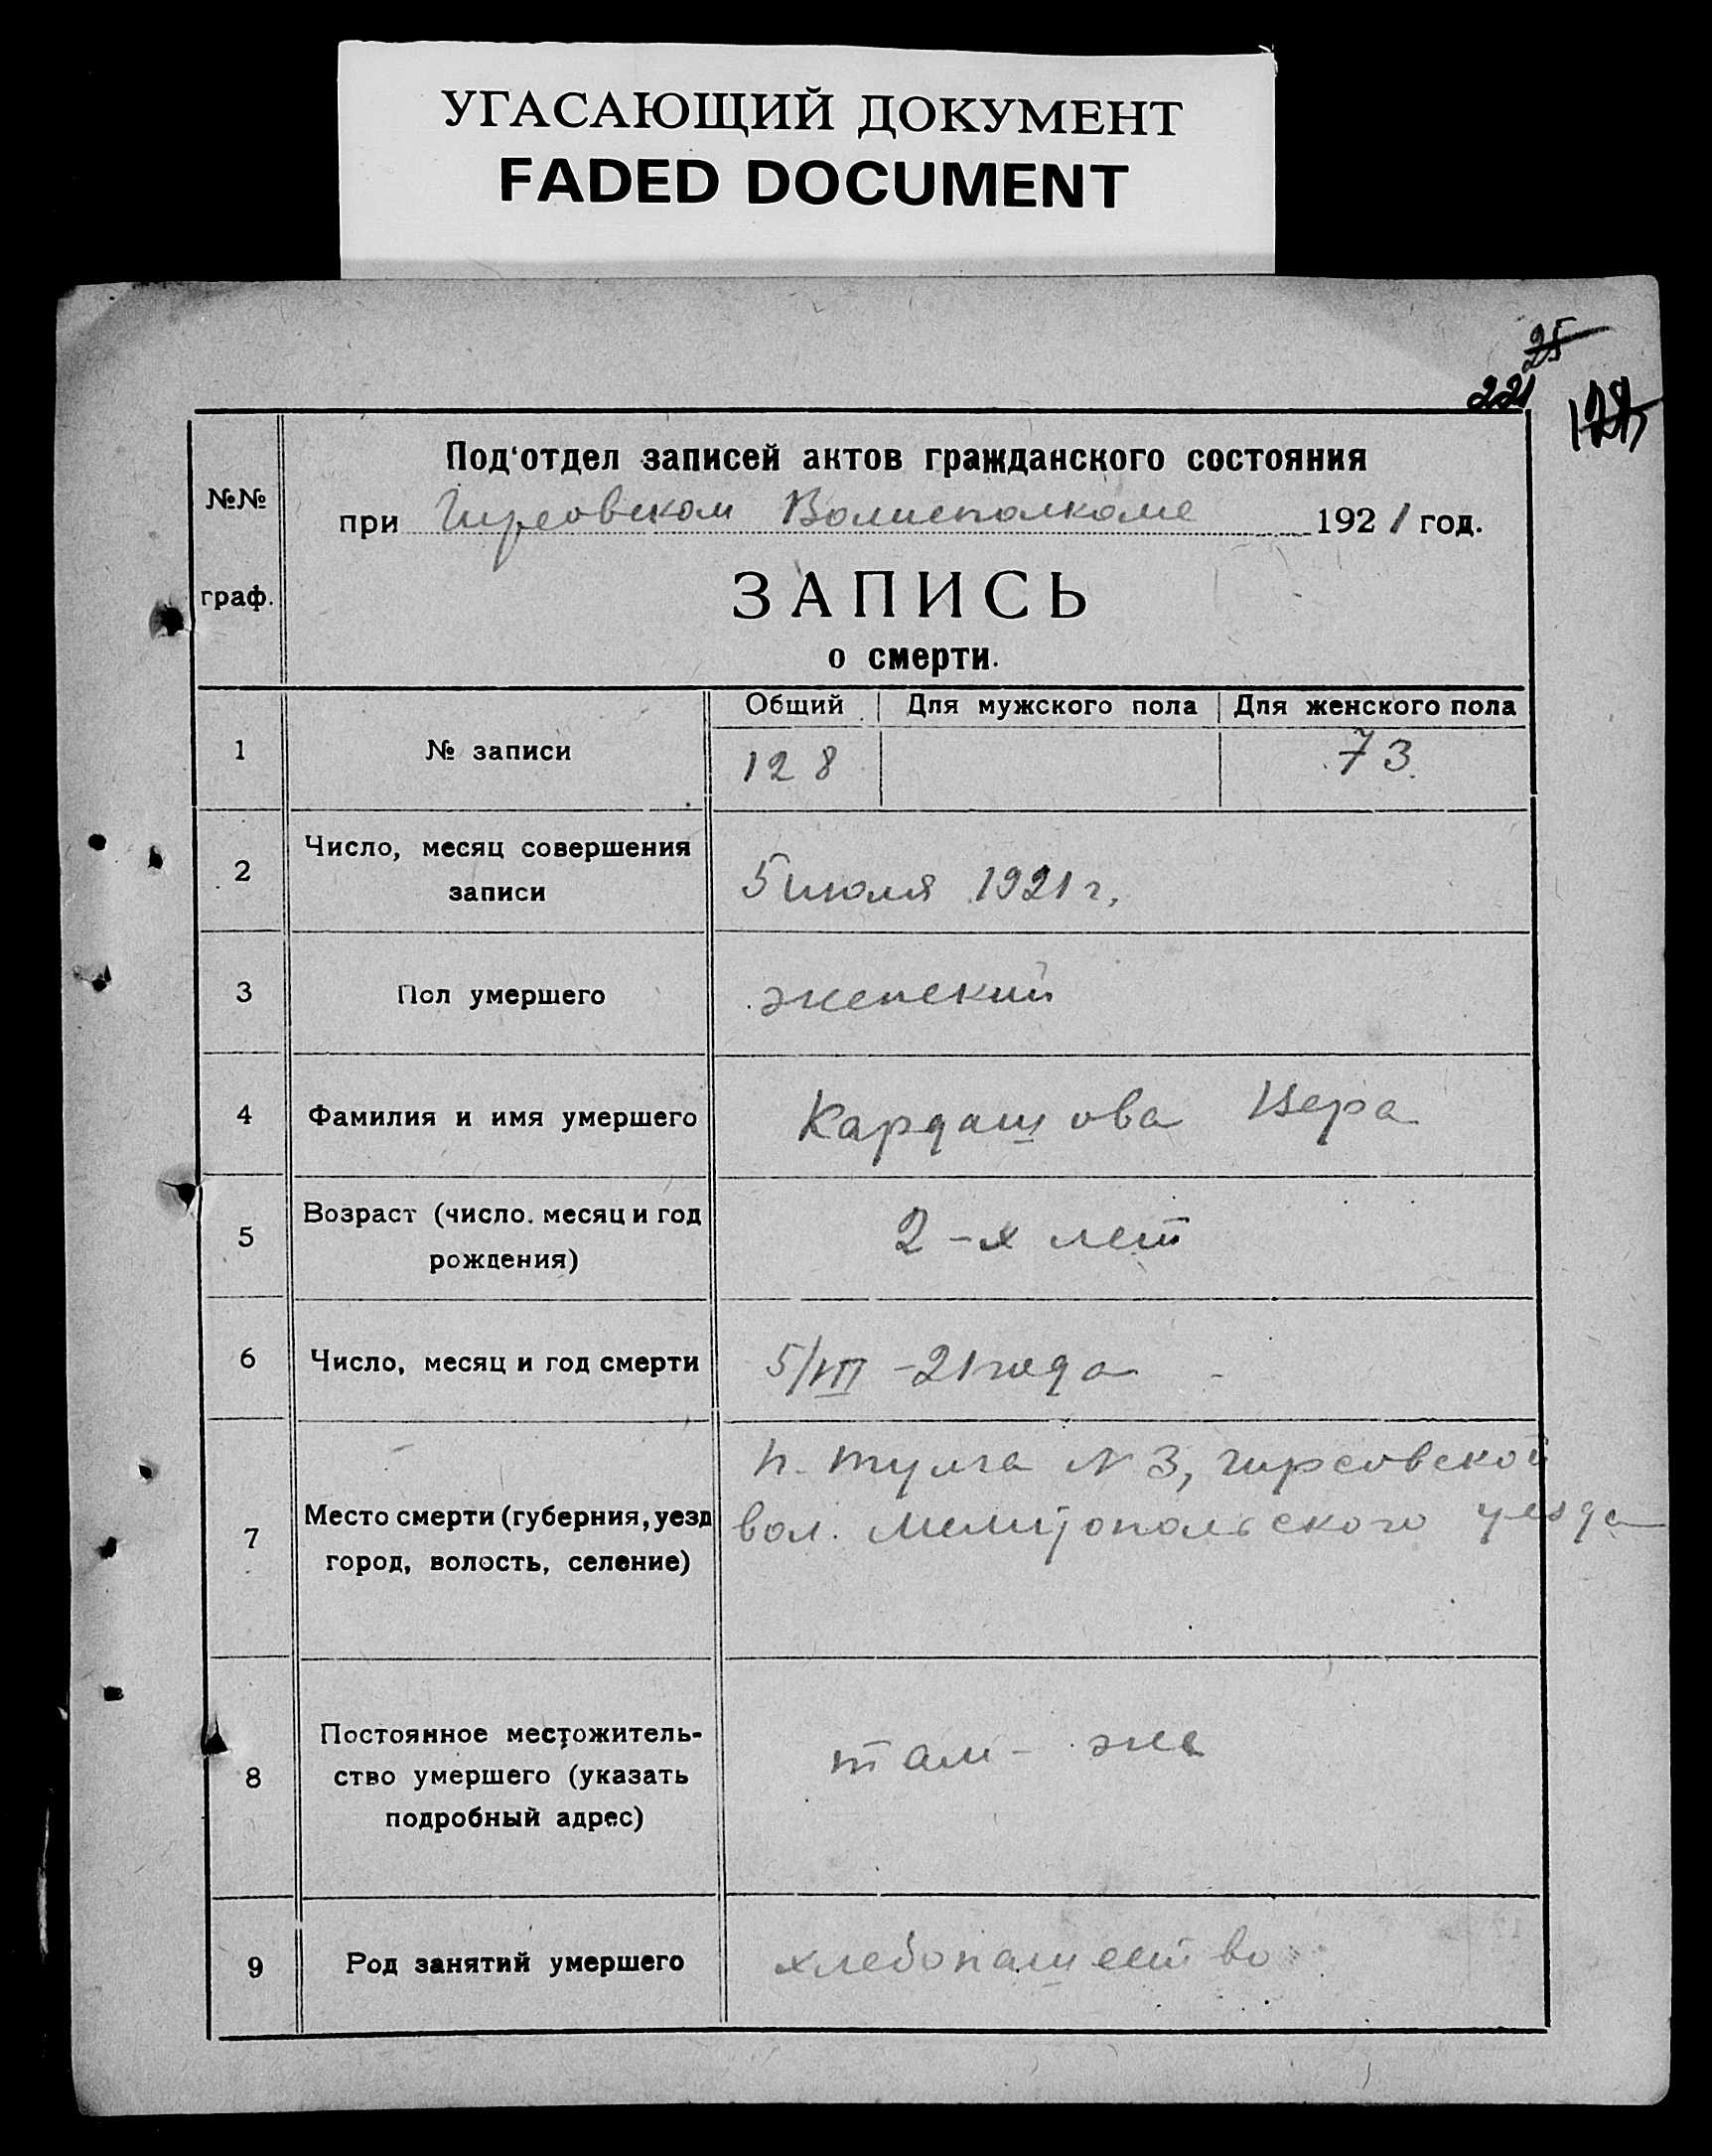 УГАСАЮЩИЙ ДОКУМЕНТ
FADED DOCUMENT
25
221
128
Под'отдел записей актов гражданского состояния
№№ граф.
при Гирсовском Волисполкоме 1921 год.
ЗАПИСЬ
о смерти.
Общий Для мужского пола Для женского пола
1 № записи 128 73
2 Число, месяц совершения
записи
5 июля 1921 г.
3 Пол умершего женский
4 Фамилия и имя умершего Кардашова Вера
5 Возраст (число, месяц и год
рождения)
2-х лет
6 Число, месяц и год смерти 5/VII -21 года
7 Место смерти (губерния, уезд
город, волость, селение)
п. тулга N 3, гирсовской
вол. Мелитопольского уезда
8 Постоянное местожитель-
ство умершего (указать
подробный адрес)
там-же
9 Род занятий умершего хлебопашество